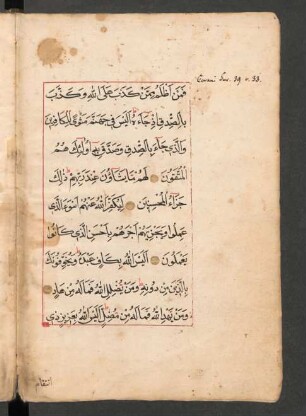 Corani Sur. 39 v. 33.
فمن اظلم ممن كذب على الله وكذب
بالصدق اذ جاءه اليس في جهنم مثوى للكافرين
والذي جاء بالصدق وصدق به اولئك هم
المتقون لهم ما يشاؤن عند ربهم ذلك
جزاء المحسنين ليكفر الله عنهم اسوء الذي
عملوا ويجزيهم اجرهم باحسن الذي كانوا
يعملون اليس الله بكاف عبده ويخوفونك
بالذين من دونه ومن يضلل الله فما له من هاد
ومن يهد الله فما له من مضل اليس الله بعزيز ذي